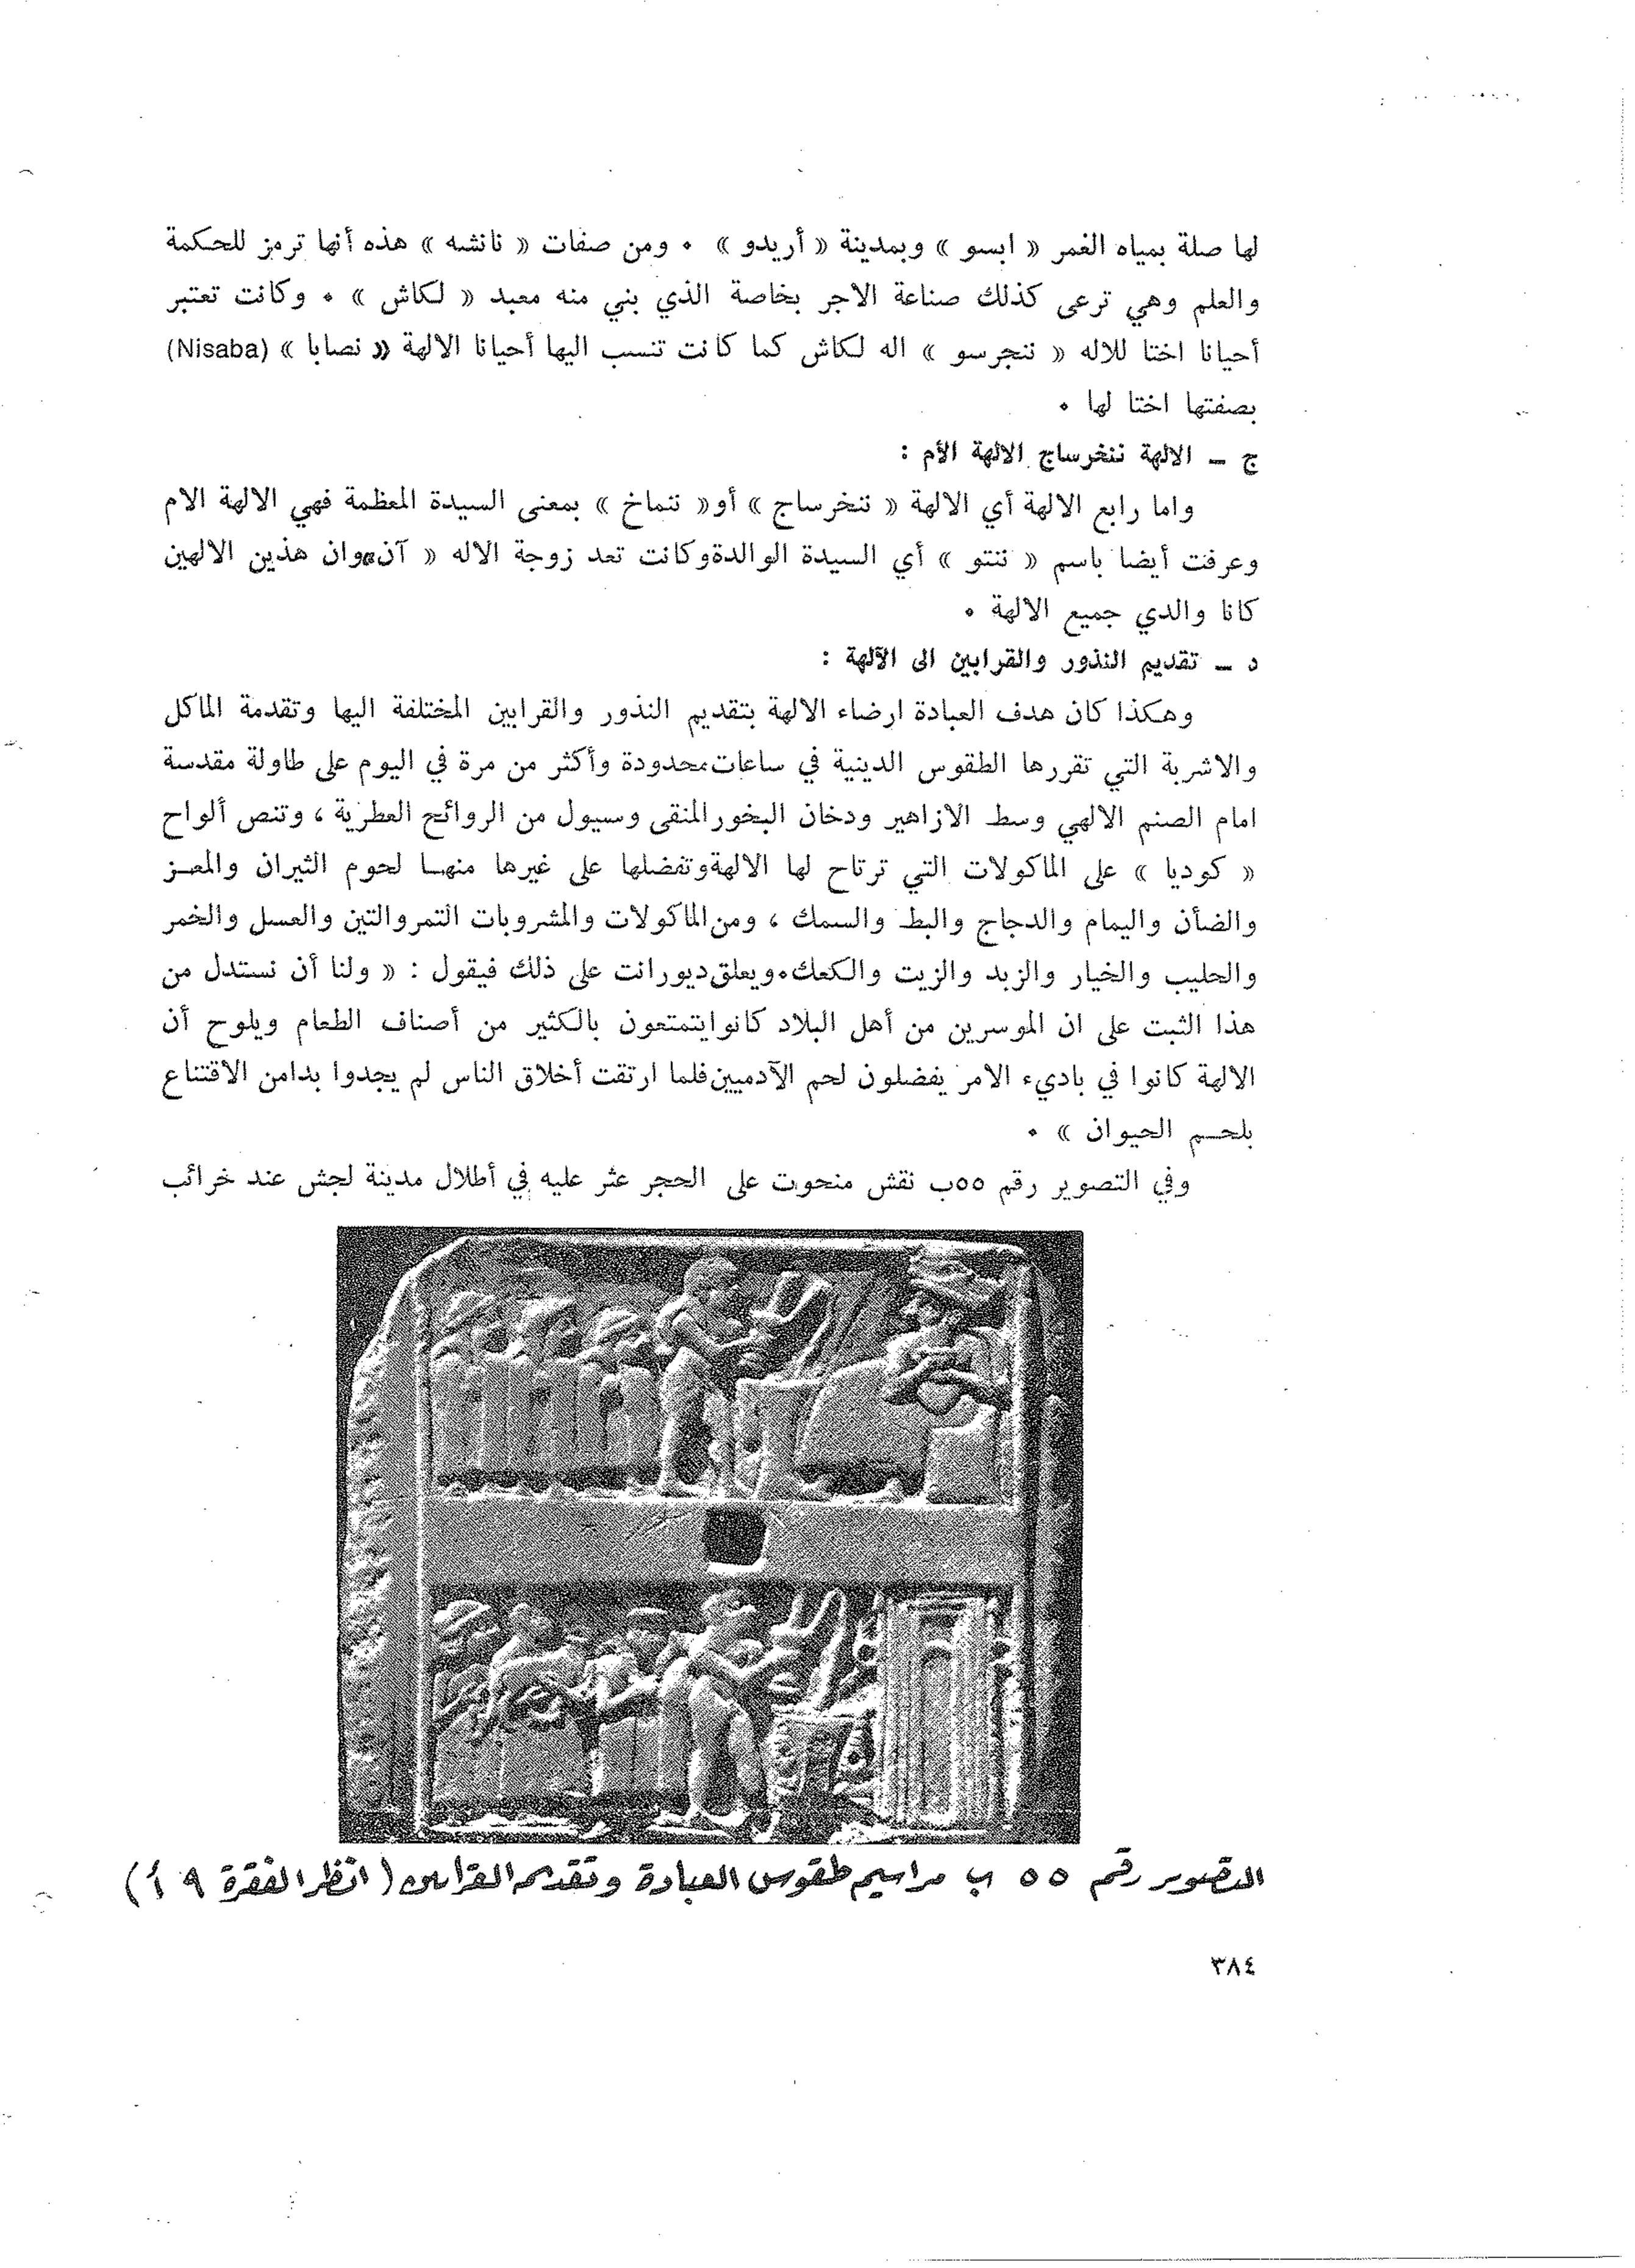 لها صلة بمياه الغمر « ابسو » وبمدينة « أريدو » ٠ ومن صفات « نانشه » هذه أنها ترمز للحكمة
والعلم وهي ترعى كذلك صناعة الاجر بخاصة الذي بني منه معبد « لكاش » ٠ وكانت تعتبر
أحيانا اختا للاله « ننجرسو » اله لكاش كما كانت تنسب اليها أحيانا الالهة « نصابا » (Nisaba)
بصفتها اختا لها ٠
ج – الالهة ننخرساج الالهة الأم :
واما رابع الالهة أي الالهة « ننخرساج » أو« ننماخ » بمعنى السيدة المعظمة فهي الالهة الام
وعرفت أيضا باسم « ننتو » أي السيدة الوالدةوكانت تعد زوجة الاله « آن»وان هذين الالهين
كانا والدي جميع الالهة ٠
د – تقديم النذور والقرابين الى الآلهة :
وهكذا كان هدف العبادة ارضاء الالهة بتقديم النذور والقرابين المختلفة اليها وتقدمة الماكل
والاشربة التي تقررها الطقوس الدينية في ساعات محدودة وأكثر من مرة في اليوم على طاولة مقدسة
امام الصنم الالهي وسط الازاهير ودخان البخورالمنقى وسيول من الروائح العطرية ، وتنص ألواح
« كوديا » على الماكولات التي ترتاح لها الالهةوتفضلها على غيرها منهـا لحوم الثيران والمعـز
والضأن واليمام والدجاج والبط والسمك ، ومن الماكولات والمشروبات التمروالتين والعسل والخمر
والحليب والخيار والزبد والزيت والكعك٠ويعلق ديورانت على ذلك فيقول : « ولنا أن نستدل من
هذا الثبت على ان الموسرين من أهل البلاد كانوايتمتعون بالكثير من أصناف الطعام ويلوح أن
الالهة كانوا في باديء الامر يفضلون لحم الآدميين فلما ارتقت أخلاق الناس لم يجدوا بدامن الاقتناع
بلحـم الحيوان » ٠
وفي التصوير رقم ٥٥ب نقش منحوت على الحجر عثر عليه في أطلال مدينة لجش عند خرائب
التصوير رقم ٥٥ ب مراسيم طقوس العبادة وتقديم القرابين ( انظر الفقرة ٩ أ )
٣٨٤